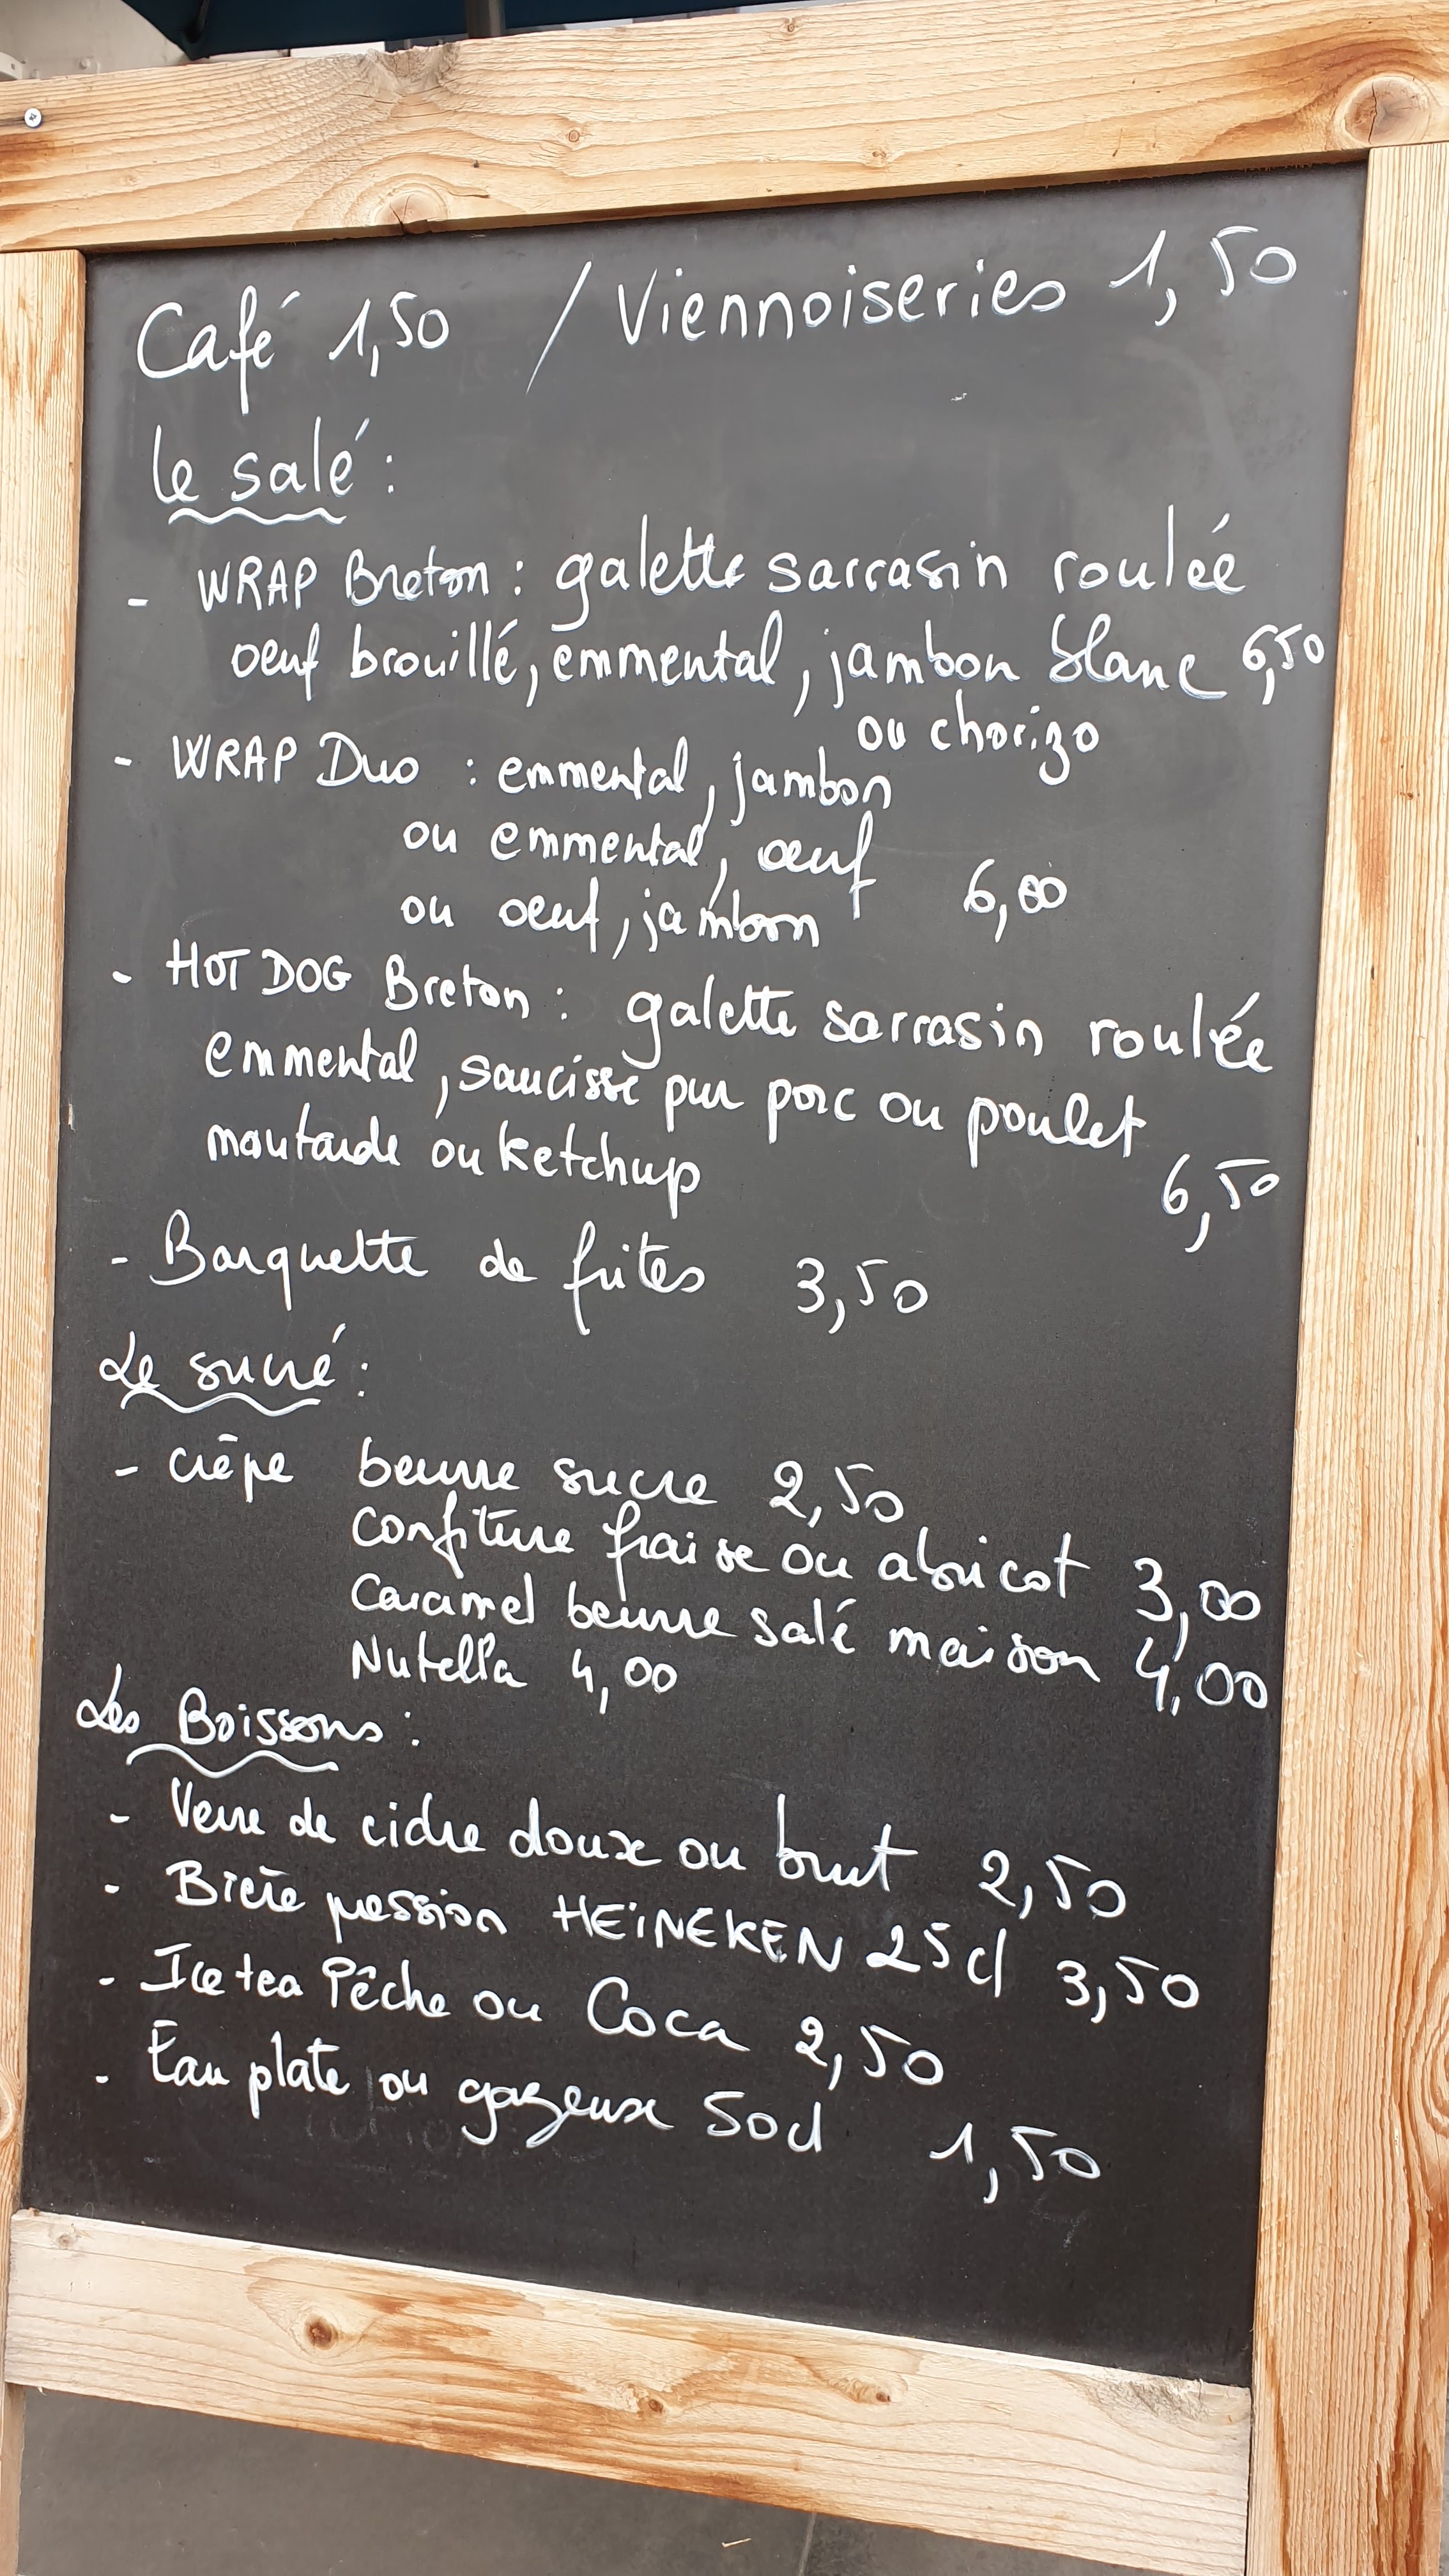 Café 1,50 / Viennoiseries 1,50
le salé :
- WRAP Breton : galette sarrasin roulée
oeuf brouillé, emmental, jambon blanc 6,50
ou chorizo
- WRAP Duo : emmental, jambon
ou emmental, oeuf
ou oeuf, jambon 6,00
- HOT DOG Breton : galette sarrasin roulée
emmental, saucisse pur porc ou poulet
moutarde ou ketchup 6,50
- Barquette de frites 3,50
Le sucré :
- crêpe beurre sucre 2,50
confiture fraise ou abricot 3,00
caramel beurre salé maison 4,00
Nutella 4,00
Les Boissons :
- Verre de cidre doux ou brut 2,50
- Bière pression HEINEKEN 25cl 3,50
- Ice tea Pêche ou Coca 2,50
- Eau plate ou gazeuse 50cl 1,50